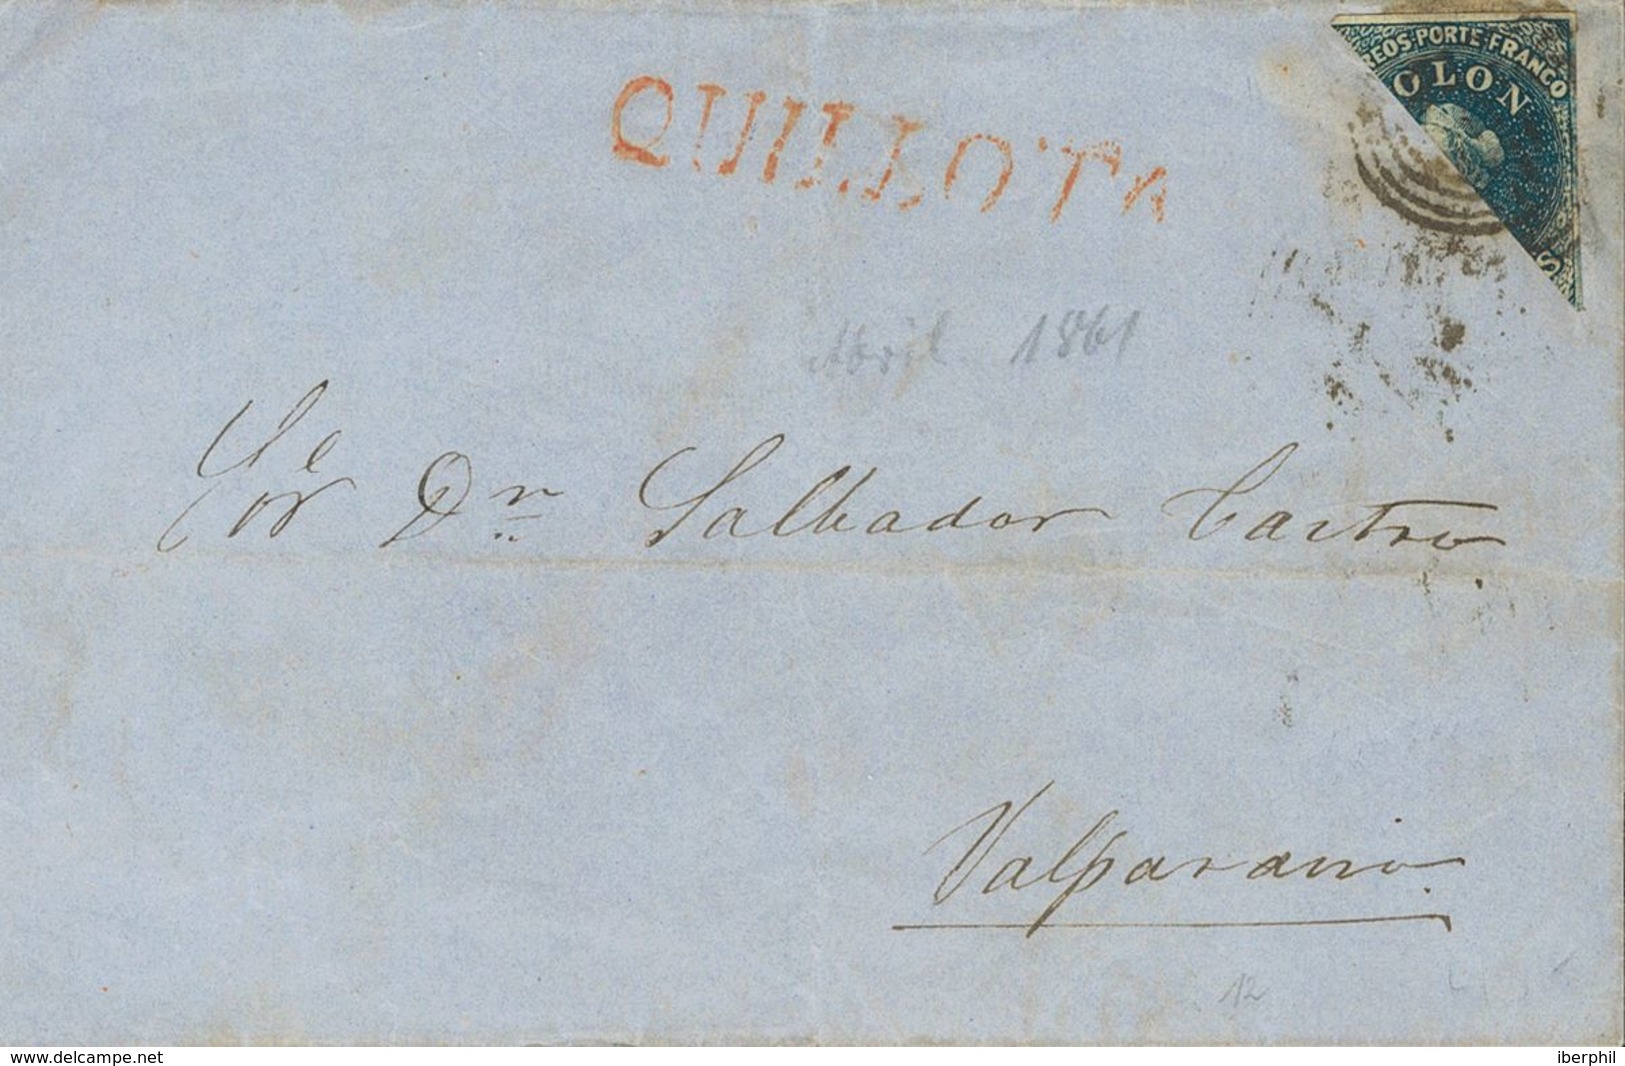 REOS·PORTE·FRANCO
OLON
QUILLOTA
Abril 1861
Sor Dn Salbador Castro
Valparaiso
12
www.delcampe.net
iberphil